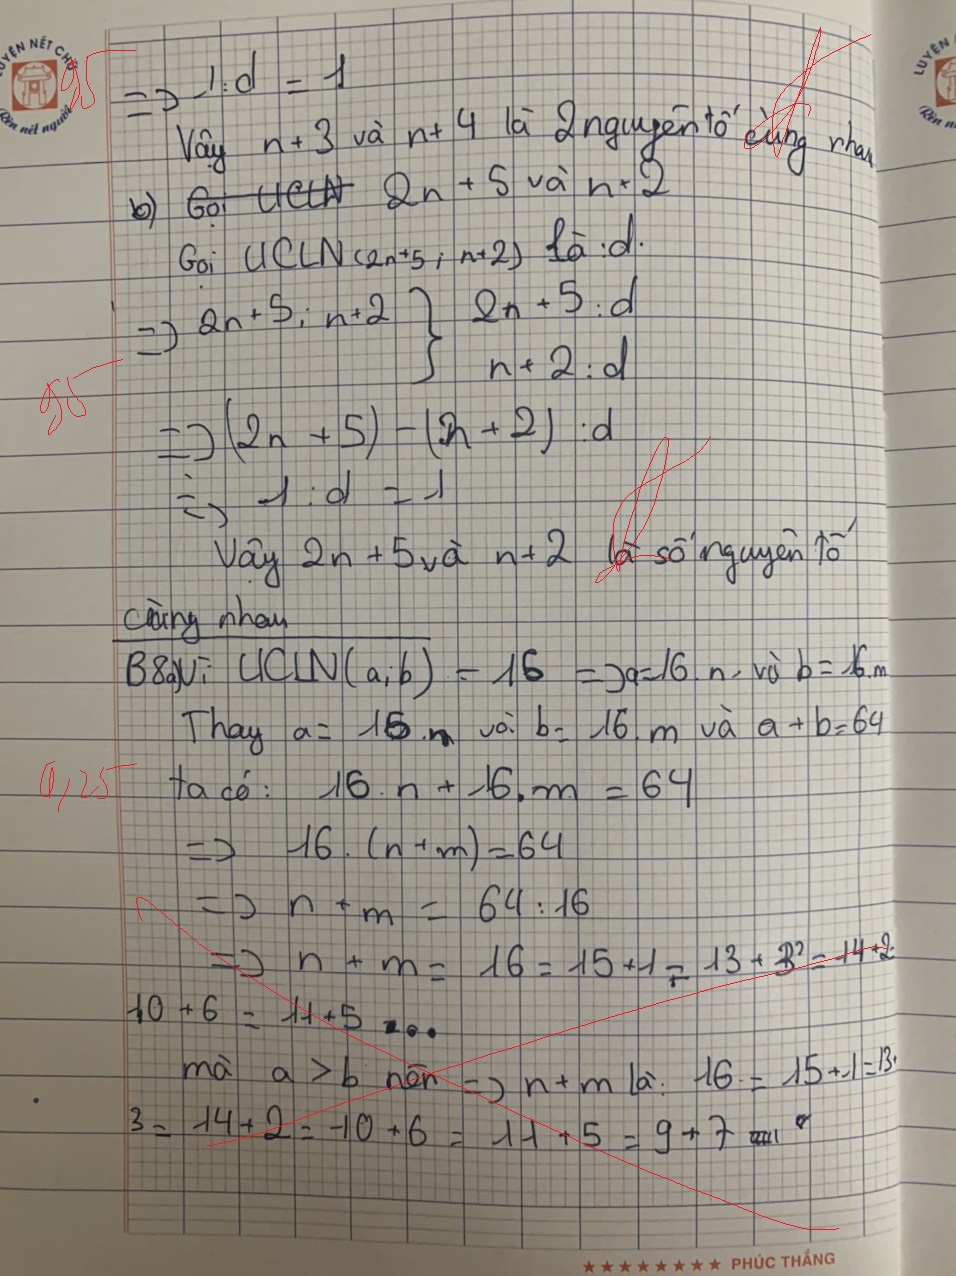 LUYỆN NÉT CHỮ
Rèn nết người
LUYỆN
Rèn
95
=> 1:d = 1
Vậy n+3 và n+4 là 2 nguyên tố cùng nhau
b) Gọi ƯCLN 2n+5 và n+2
Gọi ƯCLN (2n+5; n+2) là :d.
=> 2n+5; n+2 } 2n+5:d
n+2:d
95
=> (2n+5)-(2n+2):d
=> 1:d = 1
Vậy 2n+5 và n+2 là số nguyên tố
cùng nhau
B8a, Vì: ƯCLN(a;b) = 16 => a=16.n và b=16.m
Thay a= 16.n và b= 16.m và a+b=64
0,25 ta có: 16.n + 16.m = 64
=> 16.(n+m)=64
=> n+m = 64:16
=> n+m= 16 = 15+1 = 13+3 = 14+2=
10+6 = 11+5 ...
mà a>b nên => n+m là: 16 = 15+1=13+
3= 14+2=10+6 = 11+5 = 9+7
PHÚC THẮNG